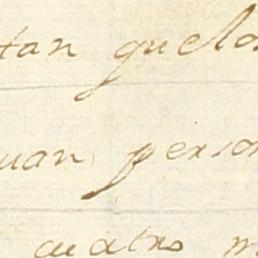 tan que los
uan person
cuatro m